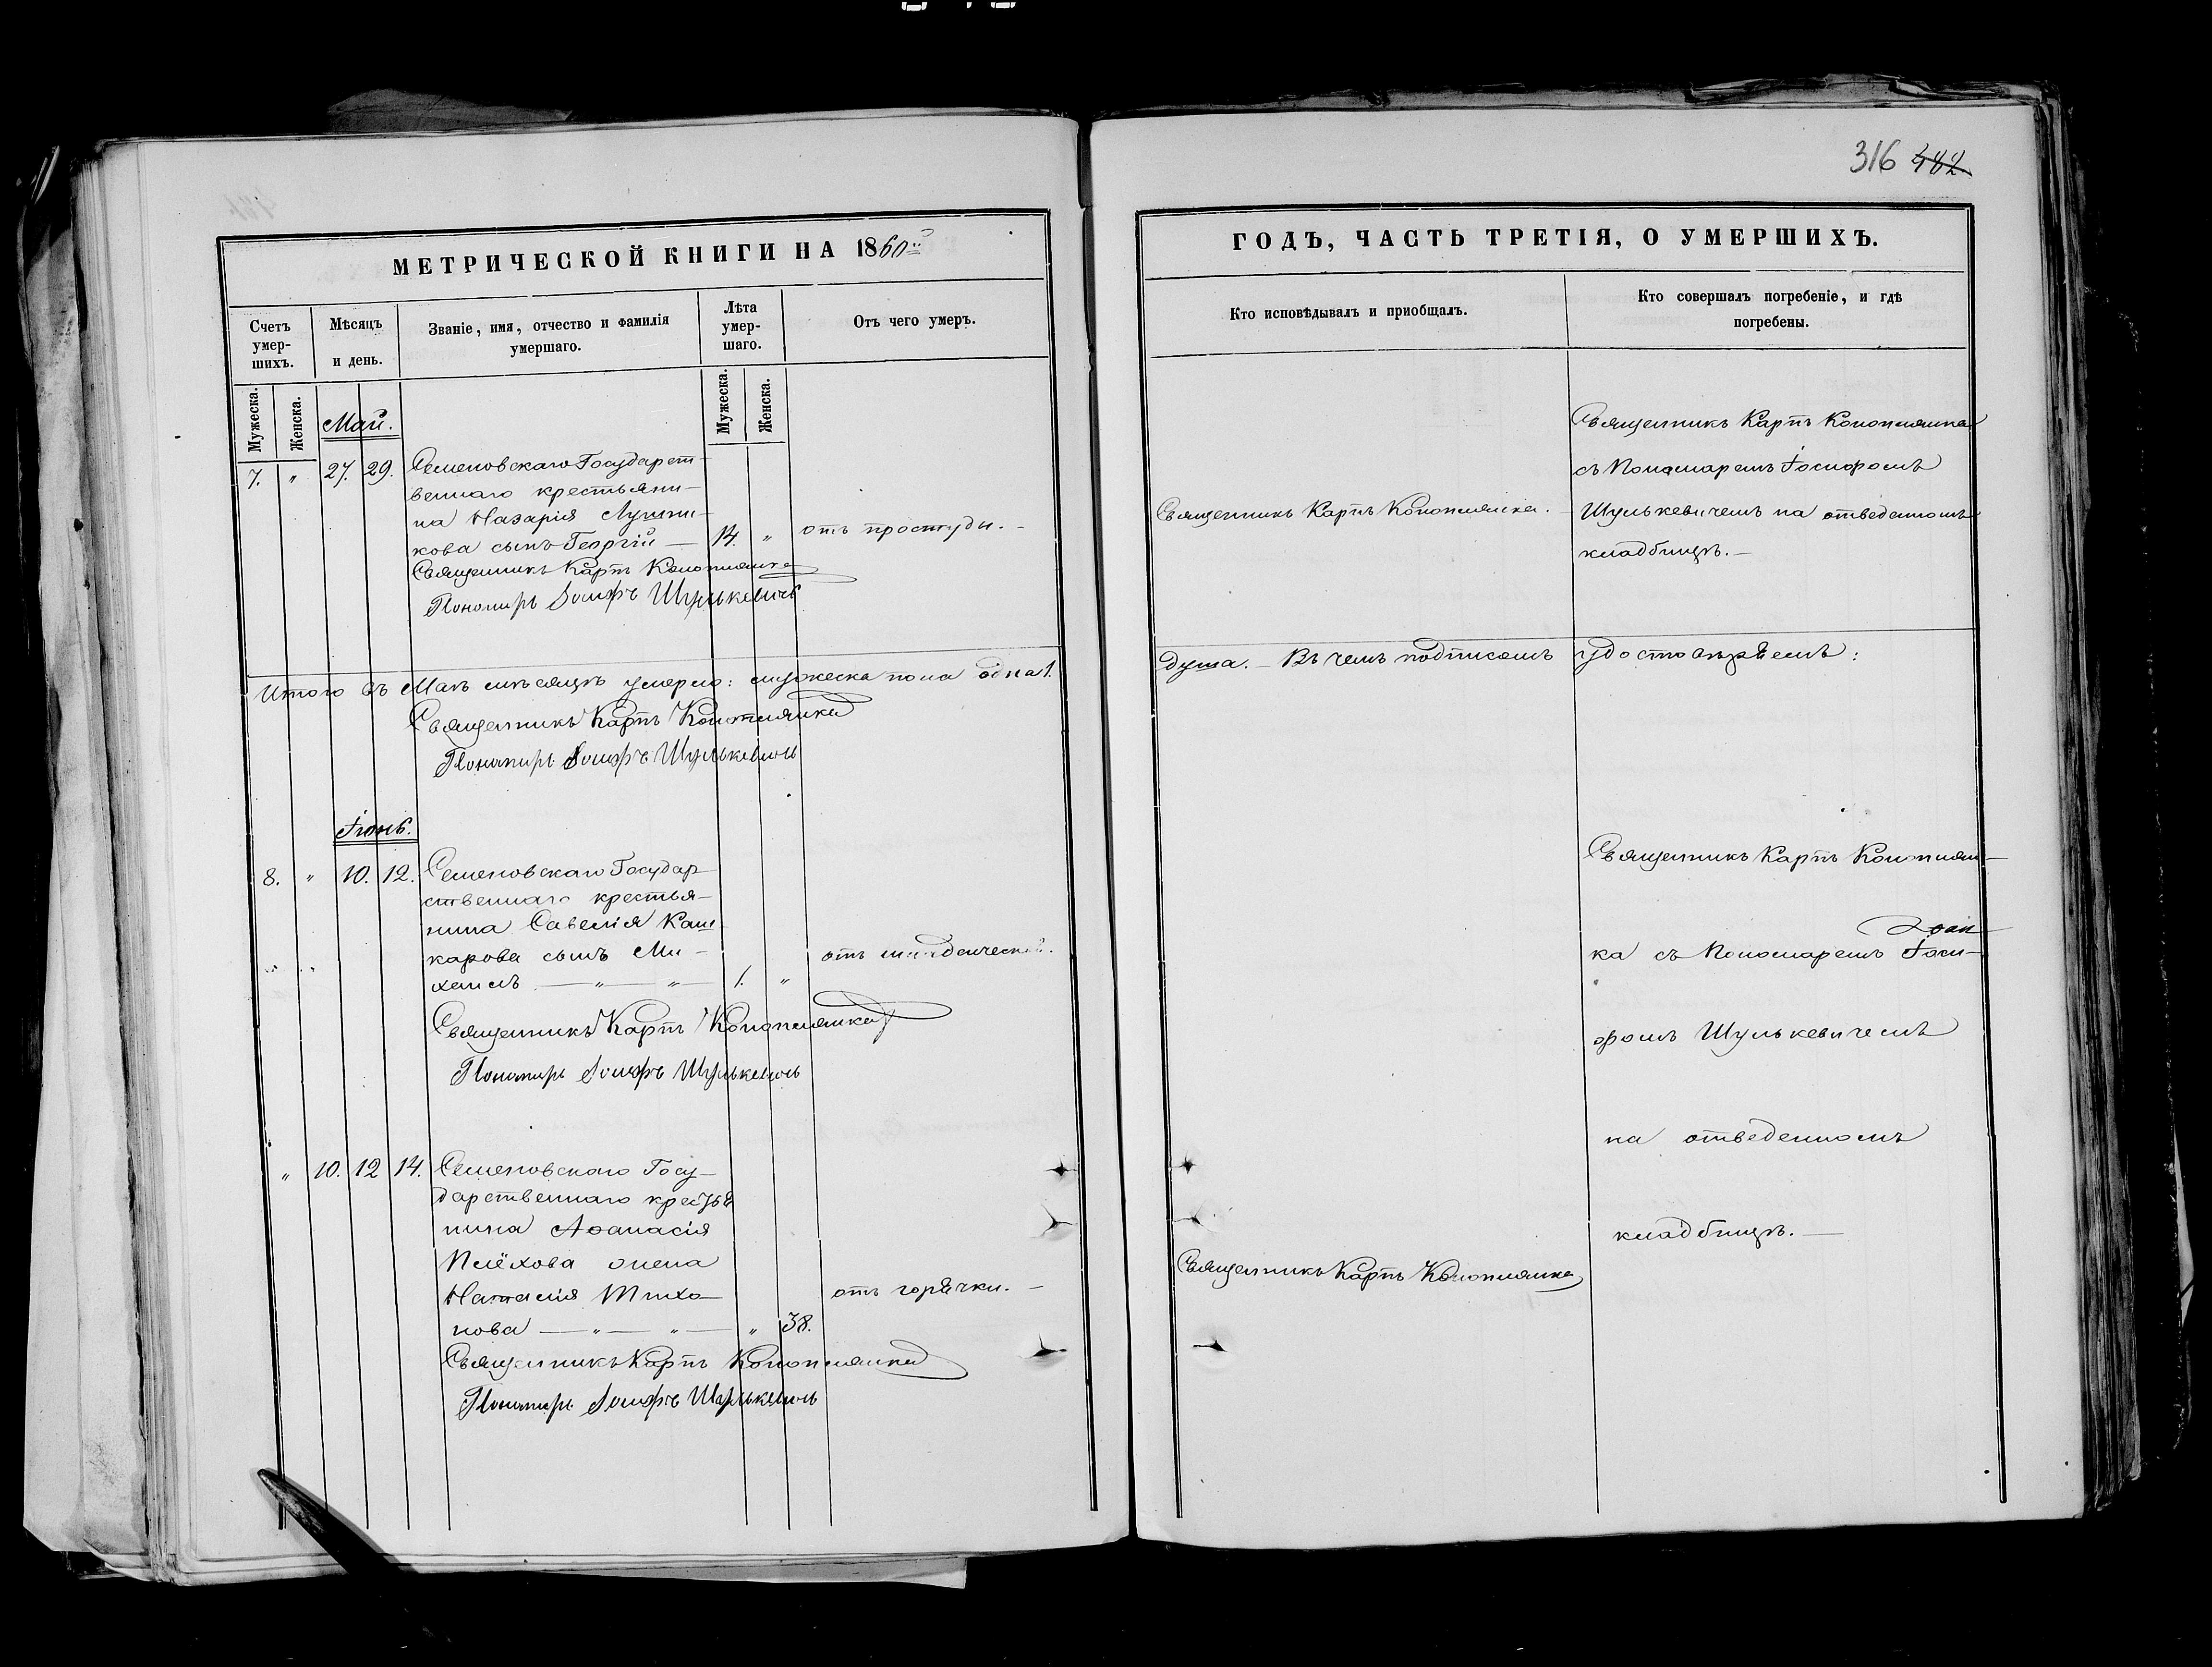 316 482
МЕТРИЧЕСКОЙ КНИГИ НА 1860й
Счетъ умер-шихъ.
Мѣсяцъ и день.
Званіе, имя, отчество и фамилія умершаго.
Лѣта умер-шаго.
Отъ чего умеръ.
Мужеска.
Женска.
Мужеска.
Женска.
Май.
7. " 27. 29. Семеновскаго Государст-
веннаго крестьяни-
на Назарія Лушни-
кова сынъ Георгій — 14. " отъ простуды. -
Священникъ Карпъ Конопляика
Пономарь Іосифъ Шулькевичъ
Итого въ Маѣ мѣсяцѣ умерло: мужеска пола одна 1.
Священникъ Карпъ Коноплянка
Пономарь Іосифъ Шулькевичъ
Іюнь.
8. " 10. 12. Семеновскаго Государ-
ственнаго крестья-
нина Савелія Каш-
карова сынъ Ми-
хаилъ — " — " — 1. " отъ младенческой.
Священникъ Карпъ Коноплянка
Пономарь Іосифъ Шулькевичъ
" 10. 12 14. Семеновскаго Госу-
дарственнаго крестья
нина Аѳанасія
Плёхова жена
Наталія Тихо-
нова — " — " — " 38. отъ горячки. -
Священникъ Карпъ Коноплянка
Пономарь Іосифъ Шулькевичъ
ГОДЪ, ЧАСТЬ ТРЕТІЯ, О УМЕРШИХЪ.
Кто исповѣдывалъ и приобщалъ.
Кто совершалъ погребеніе, и гдѣ
погребены.
Священникъ Карпъ Коноплянка.
Священникъ Карпъ Коноплянка
съ Пономаремъ Іосифомъ
Шулькевичемъ на отведенномъ
кладбищѣ. —
душа. — Въ чемъ подписомъ удостовѣряемъ:
Священникъ Карпъ Коноплян-
ка съ Пономаремъ Іоси-
фомъ Шулькевичемъ
на отведенномъ
кладбищѣ. —
Священникъ Карпъ Коноплянка